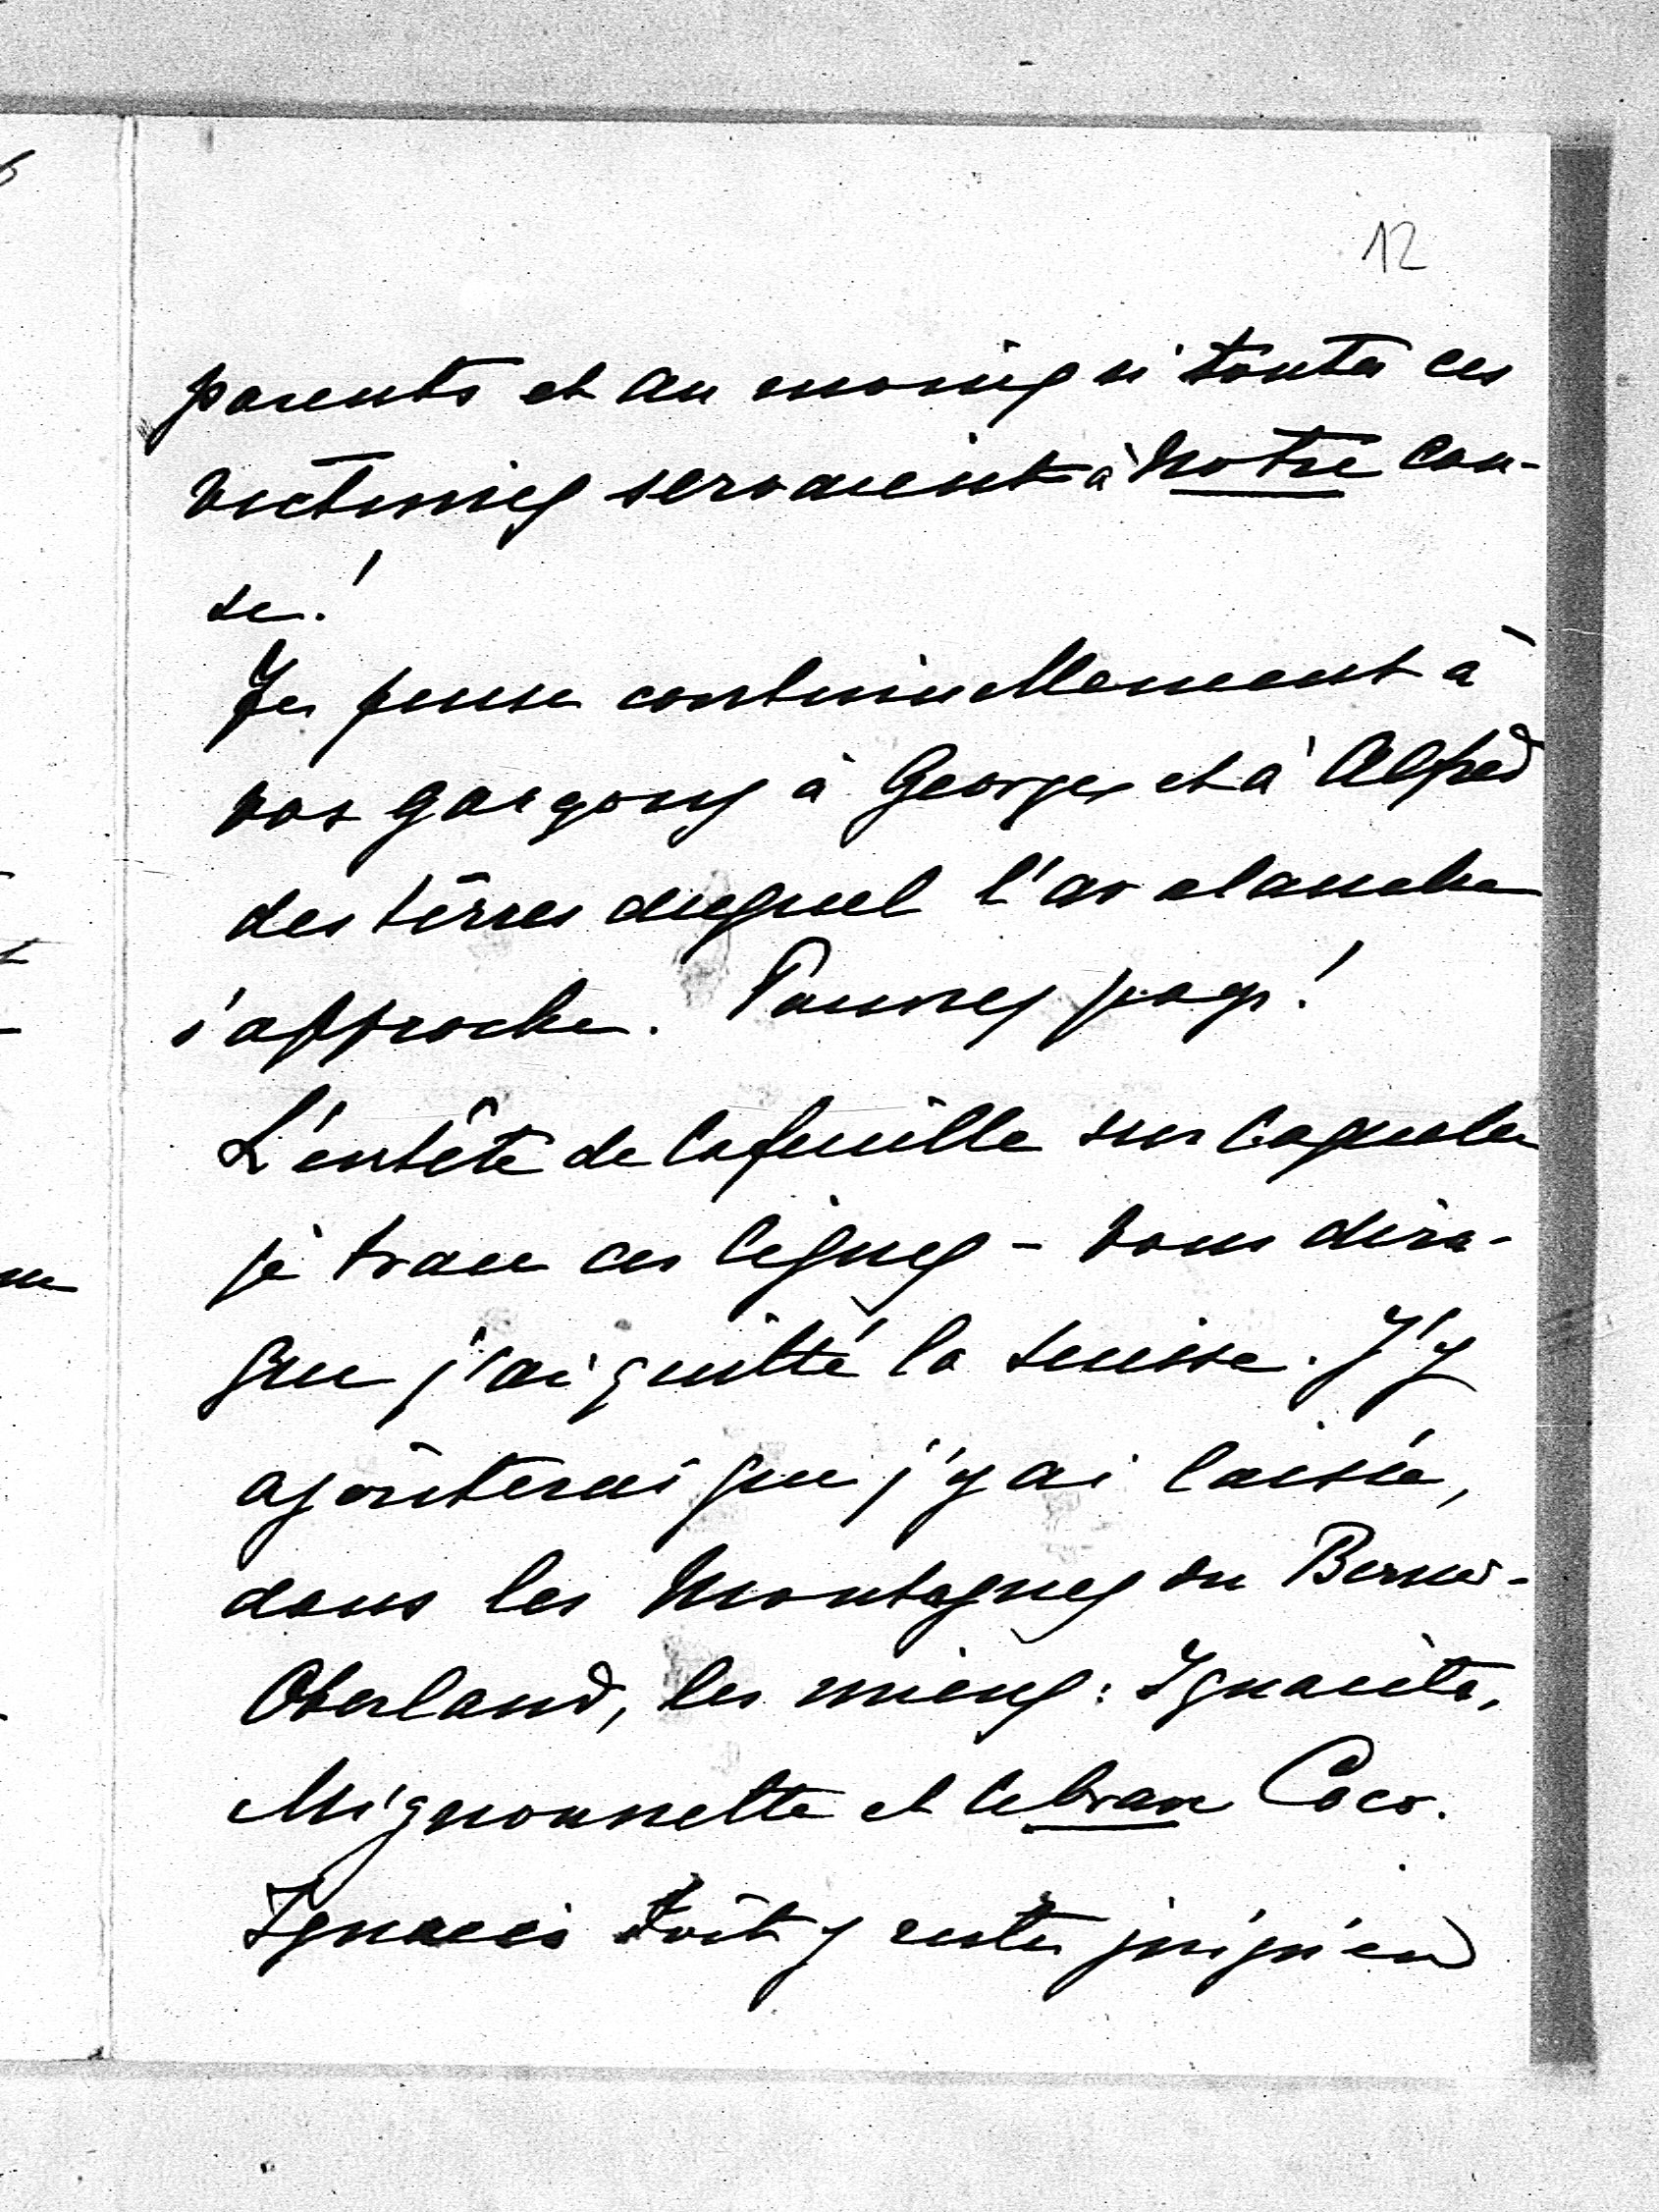 12
parents et au moins si toutes ces
victimes servaient à notre cau-
se!
Je pense continuellement à
vos garçons à Georges et à Alfred
des terres duquel l'avalanche
s'approche. Pauvres pays!
L'entête de la feuille sur laquelle
je trace ces lignes - vous dira
que j'ai quitté la Suisse. J'y
ajouterai que j'y ai laissé,
dans les Montagnes du Berner-
Oberland, les miens: Ignacita,
Mignonnette et le brave Coco.
Ignacio doit y rester jusqu'en